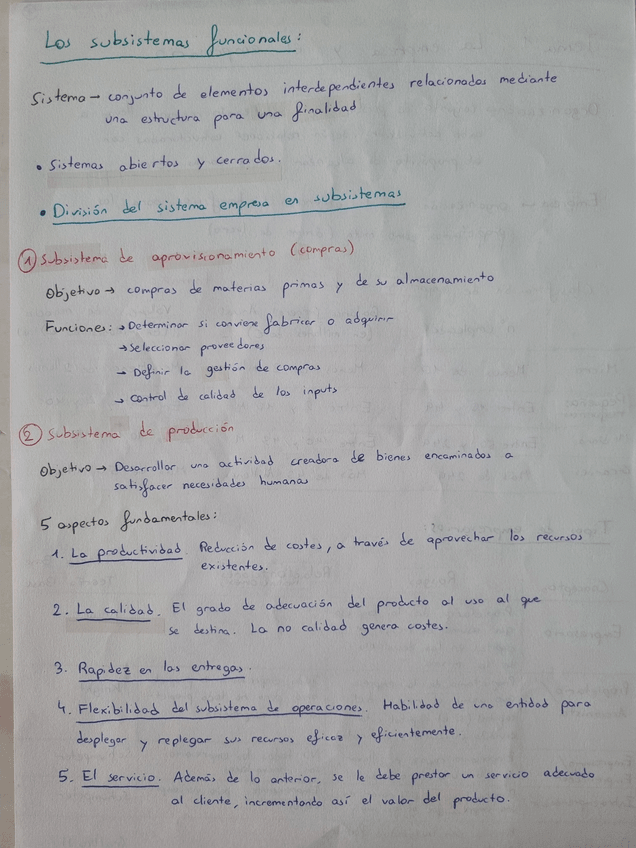 Los subsistemas funcionales:
Sistema → conjunto de elementos interdependientes relacionados mediante
una estructura para una finalidad
• Sistemas abiertos y cerrados.
• División del sistema empresa en subsistemas
① Subsistema de aprovisionamiento (compras)
Objetivo → compras de materias primas y de su almacenamiento
Funciones: → Determinar si conviene fabricar o adquirir
→ Seleccionar proveedores
→ Definir la gestión de compras
→ Control de calidad de los inputs
② Subsistema de producción
Objetivo → Desarrollar una actividad creadora de bienes encaminados a
satisfacer necesidades humanas
5 aspectos fundamentales:
1. La productividad. Reducción de costes, a través de aprovechar los recursos
existentes.
2. La calidad. El grado de adecuación del producto al uso al que
se destina. La no calidad genera costes.
3. Rapidez en las entregas.
4. Flexibilidad del subsistema de operaciones. Habilidad de una entidad para
desplegar y replegar sus recursos eficaz y eficientemente.
5. El servicio. Además de lo anterior, se le debe prestar un servicio adecuado
al cliente, incrementando así el valor del producto.